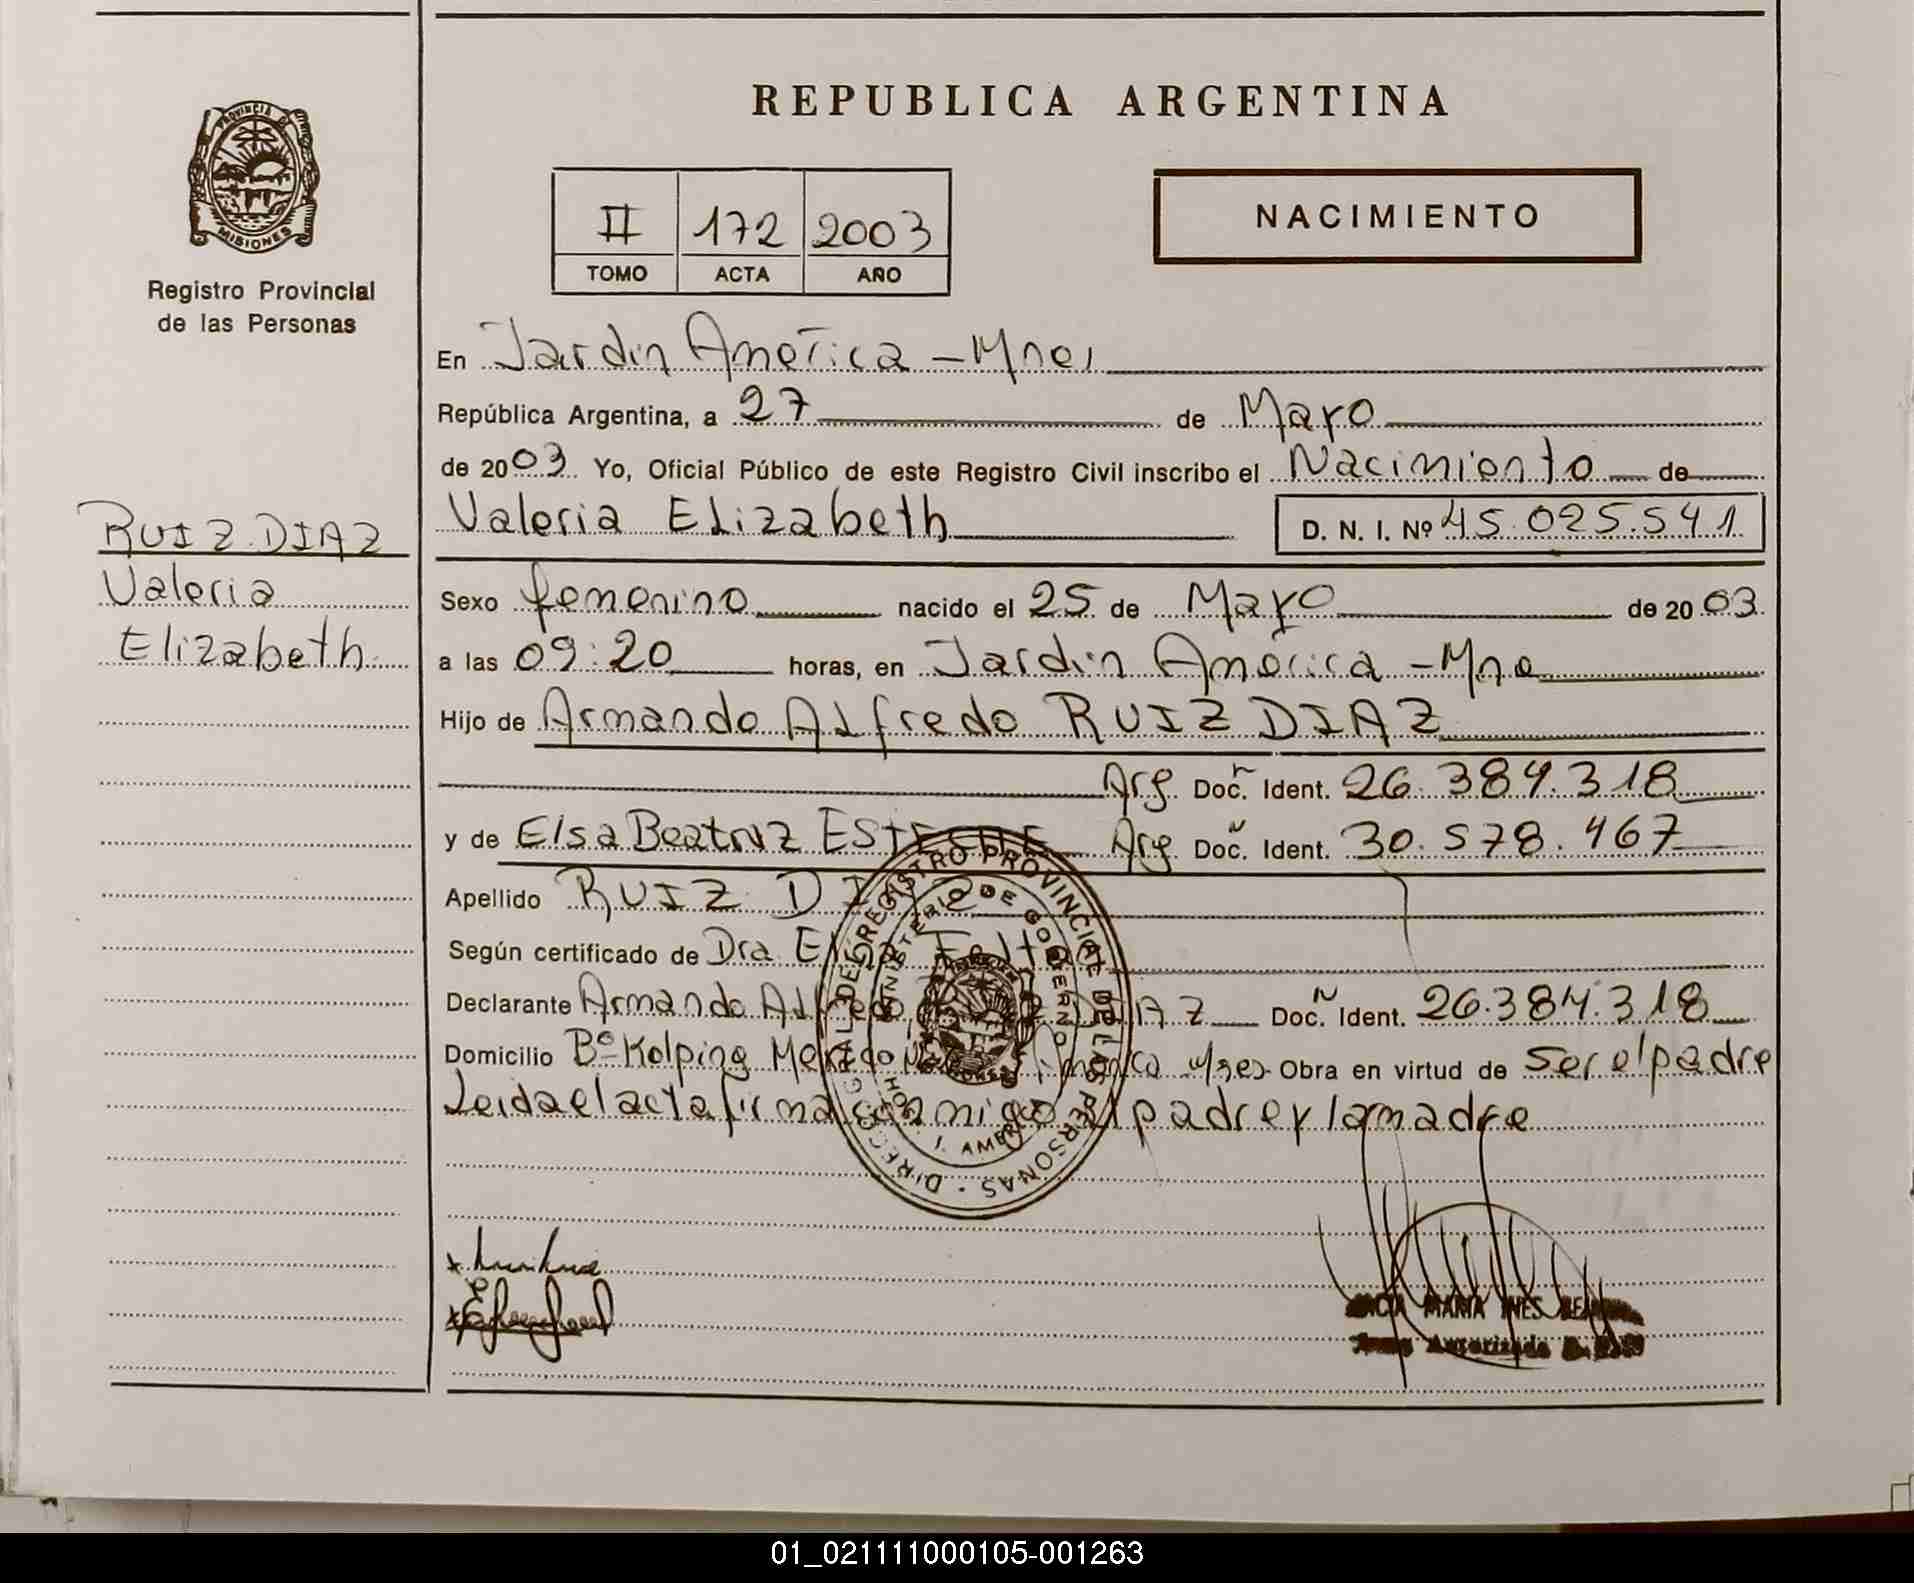 REPUBLICA ARGENTINA
PROVINCIA DE
MISIONES
Registro Provincial
de las Personas
II 172 2003
TOMO ACTA AÑO
NACIMIENTO
En Jardin América - Mnes
República Argentina, a 27 de Mayo
de 2003 Yo, Oficial Público de este Registro Civil inscribo el Nacimiento de
Valeria Elizabeth D. N. I. Nº 45.025.541
RUIZ DIAZ
Valeria
Elizabeth
Sexo femenino nacido el 25 de Mayo de 2003
a las 09:20 horas, en Jardin América - Mne
Hijo de Armando Alfredo RUIZ DIAZ
Arg. Doc. Ident. 26.384.318
y de Elsa Beatriz Arg. Doc. Ident. 30.578.467
Apellido RUIZ DIAZ
Según certificado de Dra
Declarante Armando Alfredo DIAZ Doc. Ident. 26.384.318
Domicilio Bº Kolping Mnes. Obra en virtud de ser el padre
Leida el acta firma conmigo el padre y la madre
DIRECC. GRAL DE REGISTRO PROVINCIAL DE LAS PERSONAS
MINISTERIO DE GOBIERNO
MARIA INES
Autorizada
01_021111000105-001263